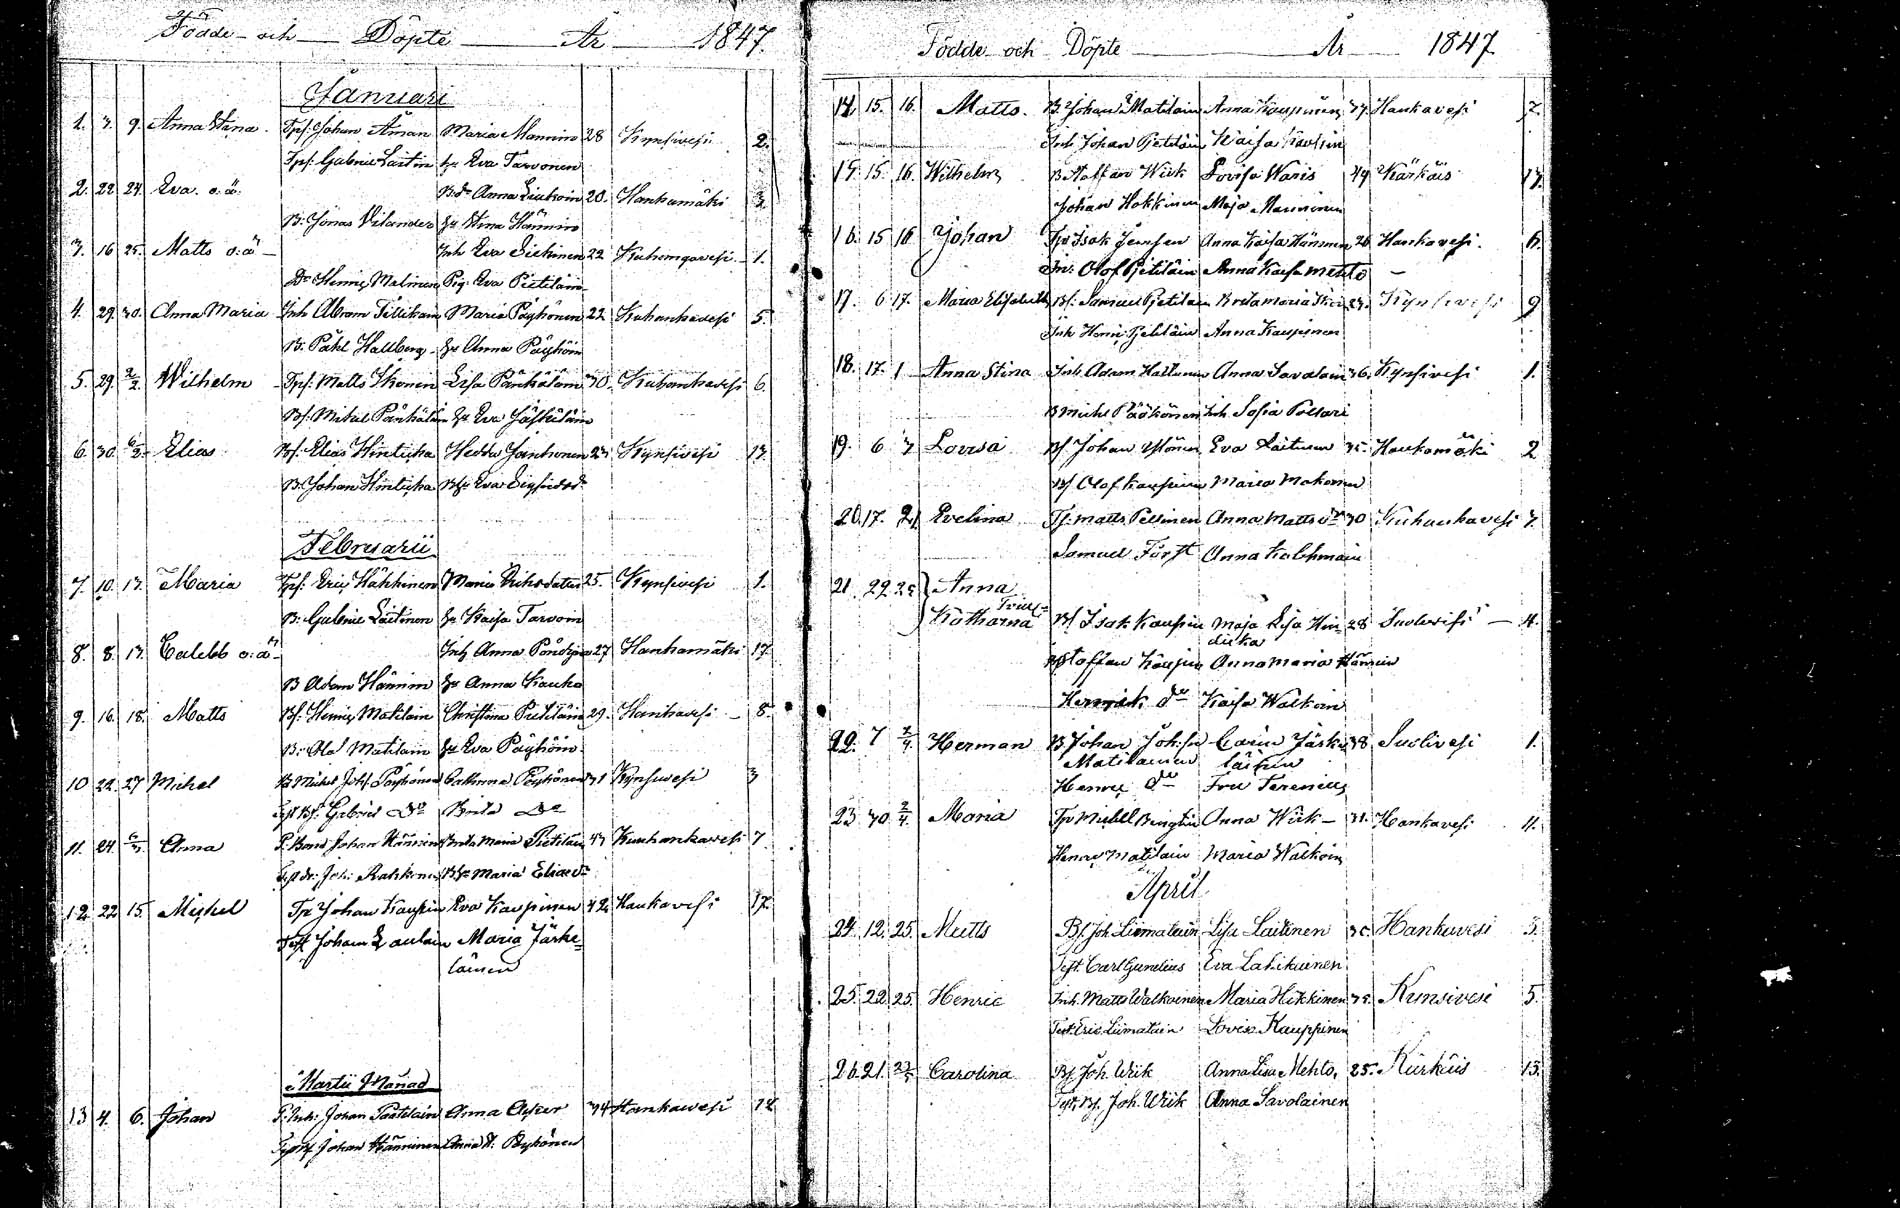 Födde och Döpte År 1847
Januari
1. 3. 9. Anna Stina. Tpf: Johan Åman Maria Mannin 28 Kynsivesi 2.
Tpf: Gabriel Laitin Hu Eva Tarvonen
2. 22 24 Eva. o.ä. Anna 20. Hankamäki 3
B: Jonas Vilander Hu Stina Hännin
3. 16 25. Matts o:ä Inh Eva 22 Kuhangavesi 1.
Dr Henric Malinen Pig. Eva Pietiläin
4. 29. 30. Anna Maria Inh Abram Maria Pöyhönen 22 Kuhankavesi 5.
B. Påhl Hallberg Hu Anna Pöyhöin
5. 29. 2/2. Wilhelm Tpf: Matts Ikonen Lisa Pänkäläin 30. Kuhankavesi 6.
Bf. Mickel Pänkäläin Hu Eva Jäskeläin
6. 30. 6/2. Elias Bf. Elias Hinticka Hedda Janhonen 23 Kynsivesi 13.
B. Johan Hinticka Eva Sigfridsdr
Februarii
7. 10. 13. Maria Tpf: Eric Häkkinen Maria Eriksdatter 25. Kynsivesi 1.
B: Gabriel Laitinen Hu Kaisa Tarvoin
8. 8. 13. Calebb o:ä Inh Anna 27 Hankamäki 17
B Adam Hännin Hu Anna Kauko
9. 16. 18. Matts Bf. Henric Matilain Christina Pietiläin 29. Hankavesi 8.
B: Olof Matilain Hu Eva Pöyhöin
10 22. 27 Michel Bf Michel Johs Pöyhönen Cathrina Pöyhönen 31 Kynsivesi 3
Test Bf. Gabriel Do Brita Do
11. 24. 6/3. Anna Johan Hännin Brita Maria Pietiläin 43 Kuuhankavesi 7
Test dr: Joh: Rahkonen Maria Eliaedr
12 22 15 Michel Tp Johan Kaupin Eva Kaupinen 42 Hankavesi 17.
Test Johan Laulain Maria Jäske=
läinen
Martii Månad
13 4. 6. Johan T: Inh: Johan Anna 34 Hankavesi 12
Johan Hänninen Anna Pöyhönen
Födde och Döpte År 1847
14. 15. 16. Matts. B. Johan Matilain Anna Kaupinen 37. Hankavesi 7.
Inh Johan Pietiläin Kaisa
15. 15. 16. Wilhelm B Staffan Wiik Lovisa Waris 49 Kärkäis 17.
Johan Hokkinen Maja Manninen
16. 15 16 Johan Tp Isak Jensen Anna Kaisa Hänninen 26 Hankavesi. 6.
Inh: Olof Pietiläin Anna Kaisa Mehto
17. 6 17. Maria Elisabeth Bf. Samuel Pietilain Brita Maria 23. Kynsivesi 9
Inh Henric Pietiläin Anna Kaupinen
18. 17. 1 Anna Stina Inh Adam Hattunen Anna Savolain 36. Kynsivesi 1.
B Michel Pääkönen Inh Sofia
19. 6 7 Lovisa Bf Johan Eva Laitinen 35. Haukamäki 2
Bf Olof Kaupinen Maria Makonen
20. 17. 21 Evelina Tf. Matts Pellinen Anna Mattsdr 30 Kuhankavesi 7.
Samuel Först Anna Kalehmain
21. 22. 25 } Anna
Katharina Tvill= Bf Isak Kaupin Maja Lisa Hin 28 Suolivesi 4.
dicka
Staffan Kaupin Anna Maria Hännin
Henrick dr Kaisa Walkoin
22. 7 2/4. Herman B Johan Joh:sn Carin Jäske 38 Suolivesi 1.
Matilainen läinen
Henric dr Fru Ferenius
23 30 2/4. Maria Tp Michell Anna Wiik 31. Hankavesi 11.
Henric Matilain Maria Walkoin
April
24. 12. 25. Matts Bf. Joh Liimatain Lisa Laitinen 36. Hankavesi 5.
Test. Carl Gumelius Eva Lahikainen
25. 22. 25. Henric Inh. Matts Walkoinen Maria Hikkinen 35. Künsivesi 5.
Test. Eric Liimatain Lovisa Kauppinen
26. 21. Carolina Bf. Joh. Wiik Anna Lisa Mehto, 25. Kürkäis 13.
Test. Bf. Joh. Wiik Anna Savolainen